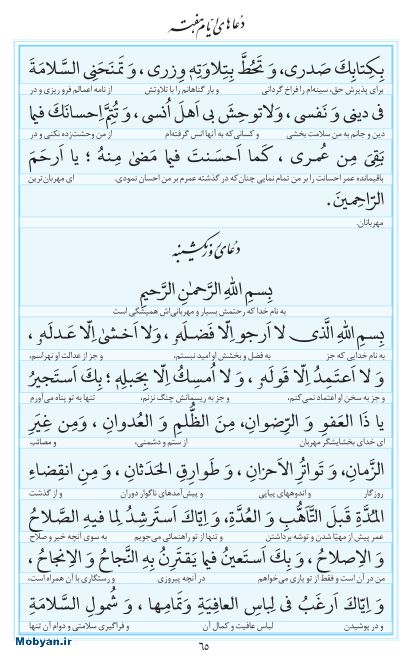 دعاهای ایام هفته
بِكِتابِكَ صَدری، وَ تَحُطَّ بِتِلاوَتِهٖ وِزری، وَ تَمنَحَنِی السَّلامَةَ
برای پذیرش حق، سینه‌ام را فراخ گردانی و بار گناهانم را با تلاوتش از نامه اعمالم فرو ریزی و در
فی دینی وَ نَفسی، وَلاتوحِشَ بی اَهلَ اُنسی، وَ تُتِمَّ اِحسانَكَ فیما
دین و جانم به من سلامت بخشی و کسانی که به آنها انس گرفته‌ام از من وحشت‌زده نکنی و در
بَقِیَ مِن عُمری، كَما اَحسَنتَ فیما مَضیٰ مِنهُ؛ یا اَرحَمَ
باقیمانده عمر احسانت را بر من تمام نمایی چنان‌که در گذشته عمرم بر من احسان نمودی. ای مهربان‌ترین
الرّاحِمینَ.
مهربانان.
دعای روز یکشنبه
بِسمِ اللهِ الرَّحمٰنِ الرَّحیمِ
به نام خدا که رحمتش بسیار و مهربانی‌اش همیشگی است
بِسمِ اللهِ الَّذی لا اَرجو اِلّا فَضلَهٗ، وَلا اَخشیٰ اِلّا عَدلَهٗ،
به نام خدایی که جز به فضل و بخشش او امید نبستم، و جز از عدالت او نهراسم،
وَ لا اَعتَمِدُ اِلّا قَولَهٗ، وَ لا اُمسِكُ اِلّا بِحَبلِهٖ؛ بِكَ اَستَجیرُ
و جز به سخن او اعتماد نمی‌کنم، و جز به ریسمانش چنگ نزنم، تنها به تو پناه می‌آورم
یا ذَا العَفوِ وَ الرِّضوانِ، مِنَ الظُّلمِ وَ العُدوانِ، وَمِن غِیَرِ
ای خدای بخشایشگر مهربان از ستم و دشمنی، و مصائب
الزَّمانِ، وَ تَواتُرِ الاَحزانِ، وَ طَوارِقِ الحَدَثانِ، وَ مِنِ انقِضاءِ
روزگار و اندوههای پیاپی و پیش‌آمدهای ناگوار دوران و از گذشت
المُدَّةِ قَبلَ التَّأَهُّبِ وَ العُدَّةِ، وَ اِیّاكَ اَستَرشِدُ لِما فیهِ الصَّلاحُ
عمر پیش از مهیّا شدن و توشه برداشتن و تنها از تو راهنمائی می‌جویم به سوی آنچه خیر و صلاح
وَ الاِصلاحُ، وَ بِكَ اَستَعینُ فیما یَقتَرِنُ بِهِ النَّجاحُ وَ الاِنجاحُ،
من در آن است و فقط از تو یاری می‌خواهم در آنچه پیروزی و رستگاری با آن همراه است،
وَ اِیّاكَ اَرغَبُ فی لِباسِ العافِیَةِ وَتَمامِها، وَ شُمولِ السَّلامَةِ
و در پوشیدن لباس عافیت و کمال آن و فراگیری سلامتی و دوام آن تنها
۶۵
Mobyan.ir